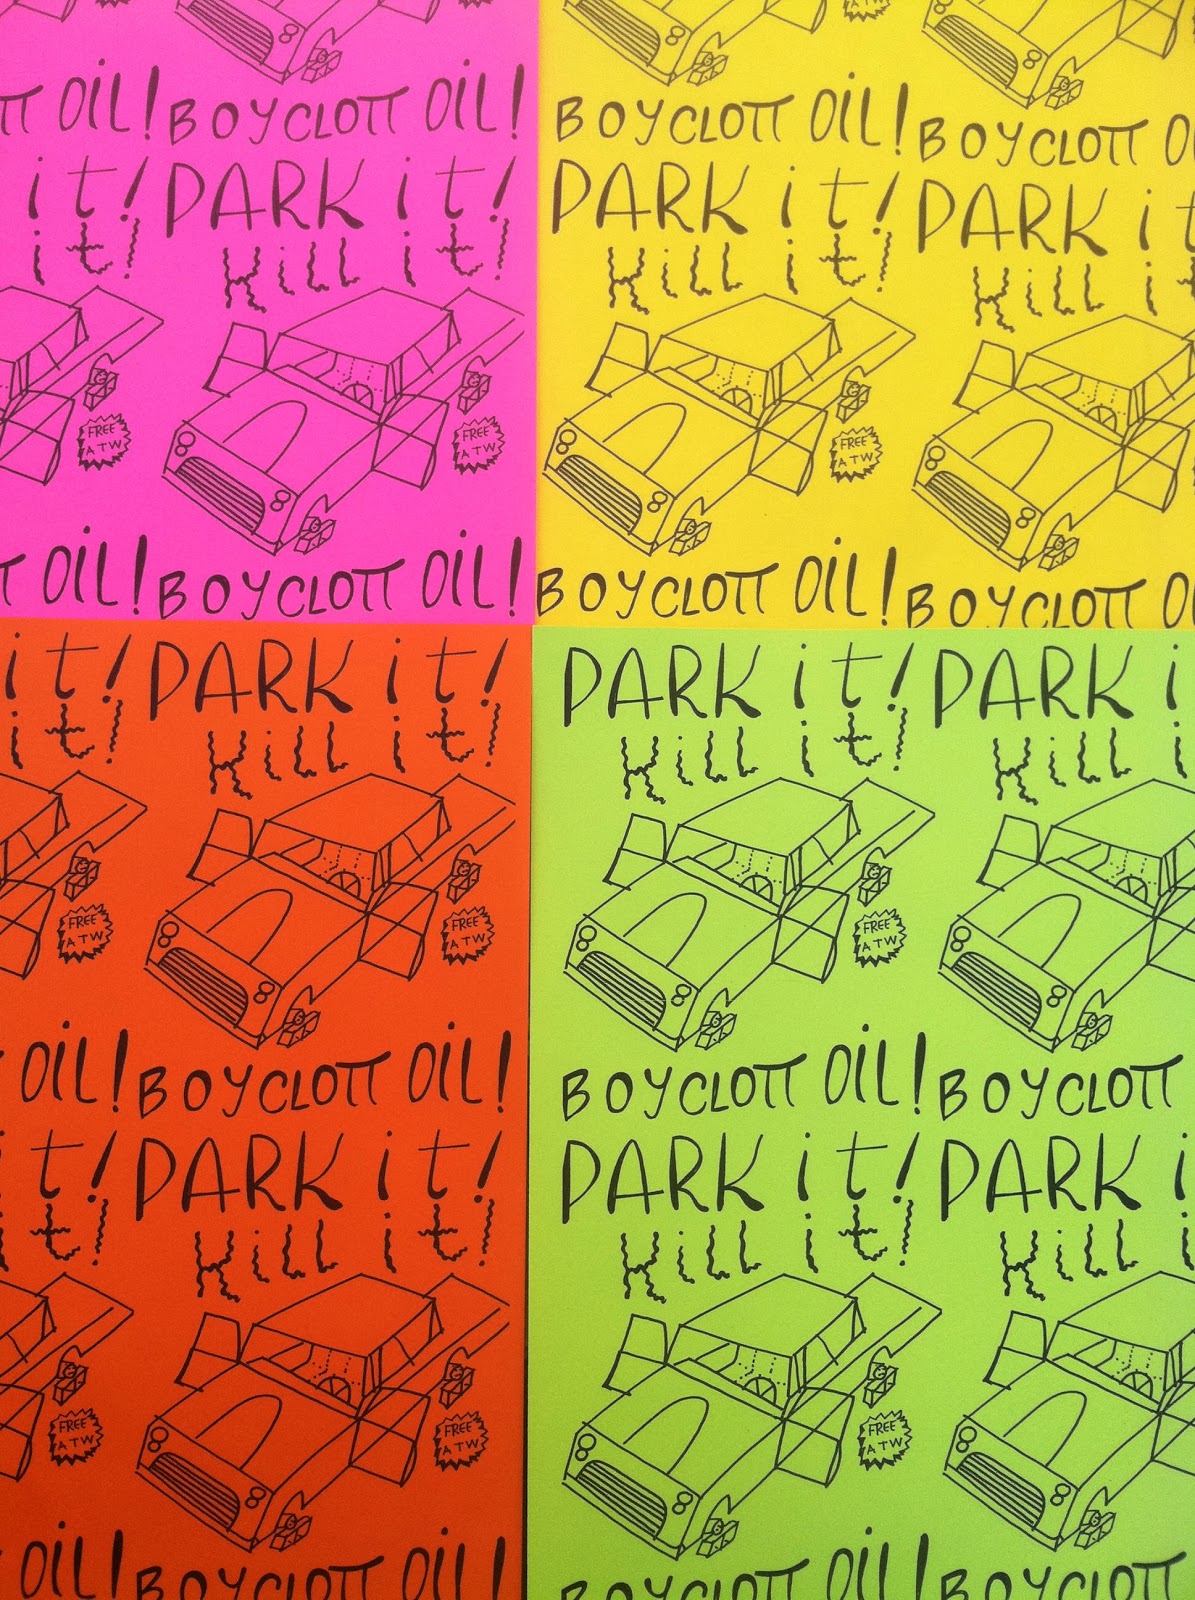 TT OiL! BOYCLOTT OiL!
it! PARK it!
it! Kill it!
FREE
A TW
FREE
A TW
T OiL! BOYCLOTT OiL!
A TW
BOYCLOTT OiL! BOYCLOTT Oi
PARK it! PARK it
Kill it! Kill it
FREE
A TW
BOYCLOTT OiL! BOYCLOTT Oi
it! PARK it!
it! Kill it!
FREE
A TW
FREE
A TW
OiL! BOYCLOTT OiL!
it! PARK it!
it! Kill it!
FREE
A TW
FREE
A TW
OiL! BOYCLOTT OiL!
PARK it! PARK i
Kill it! Kill i
FREE
A TW
BOYCLOTT OiL! BOYCLOTT
PARK it! PARK i
Kill it! Kill i
FREE
A TW
BOYCLOTT OiL! BOYCLOTT